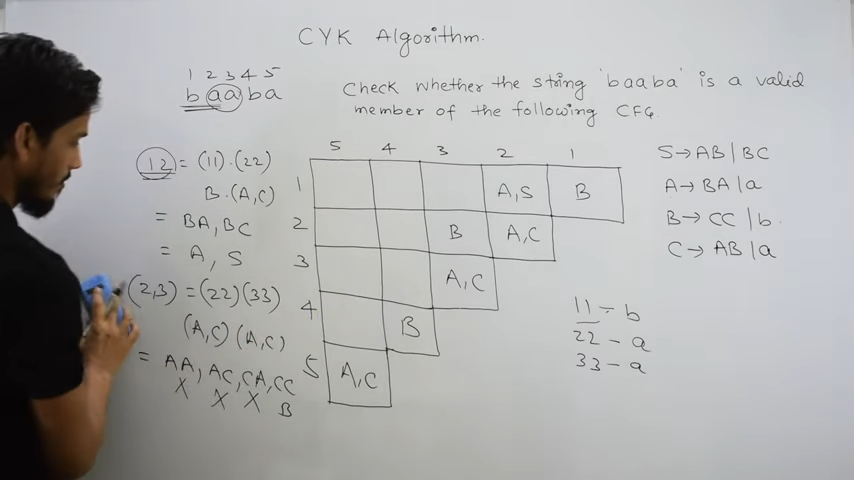 CYK Algorithm.
1 2 3 4 5
b a a b a
Check whether the string 'baaba' is a valid
member of the following CFG.
12 = (11).(22)
B.(A,C)
= BA, BC
= A, S
(2,3) = (22)(33)
(A,C) (A,C)
= AA, AC, CA, CC
X X X B
5 4 3 2 1
1 A,S B
2 B A,C
3 A,C
4 B
5 A,C
S→AB|BC
A→BA|a
B→CC|b
C→AB|a
11 - b
22 - a
33 - a